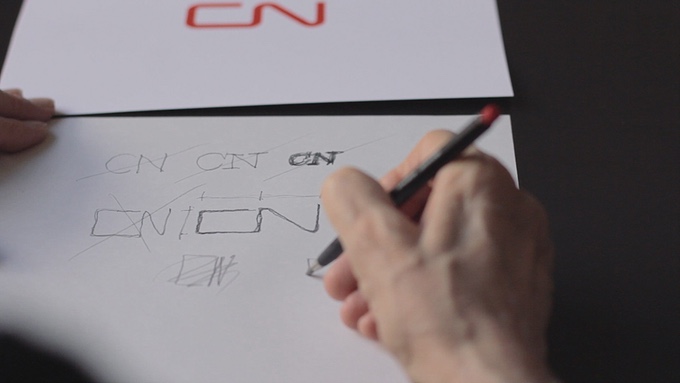 CN
CN CN CN
CN CN